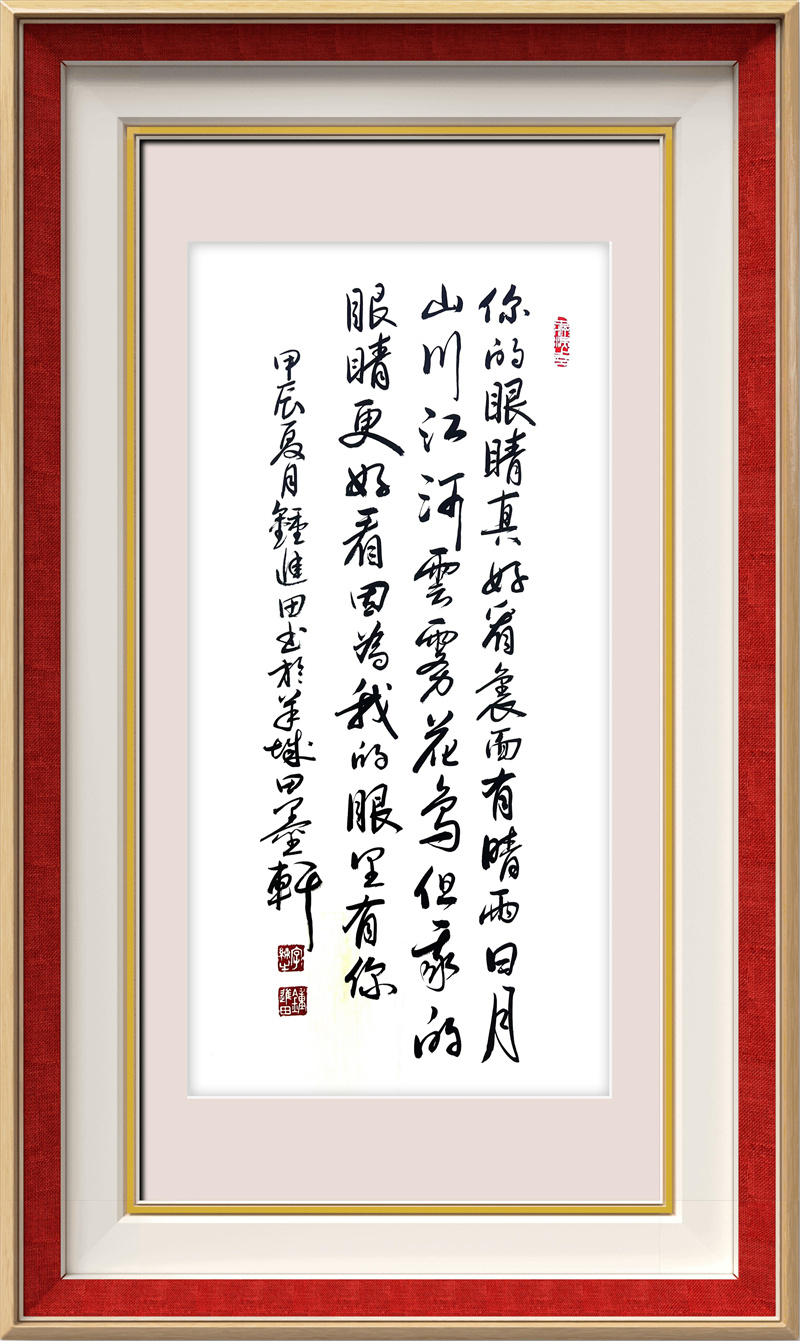 你的眼睛真好看裏面有晴雨日月
山川江河雲雾花鸟但我的
眼睛更好看因為我的眼里有你
甲辰夏月鍾進田书於羊城田墨軒
鍾進田